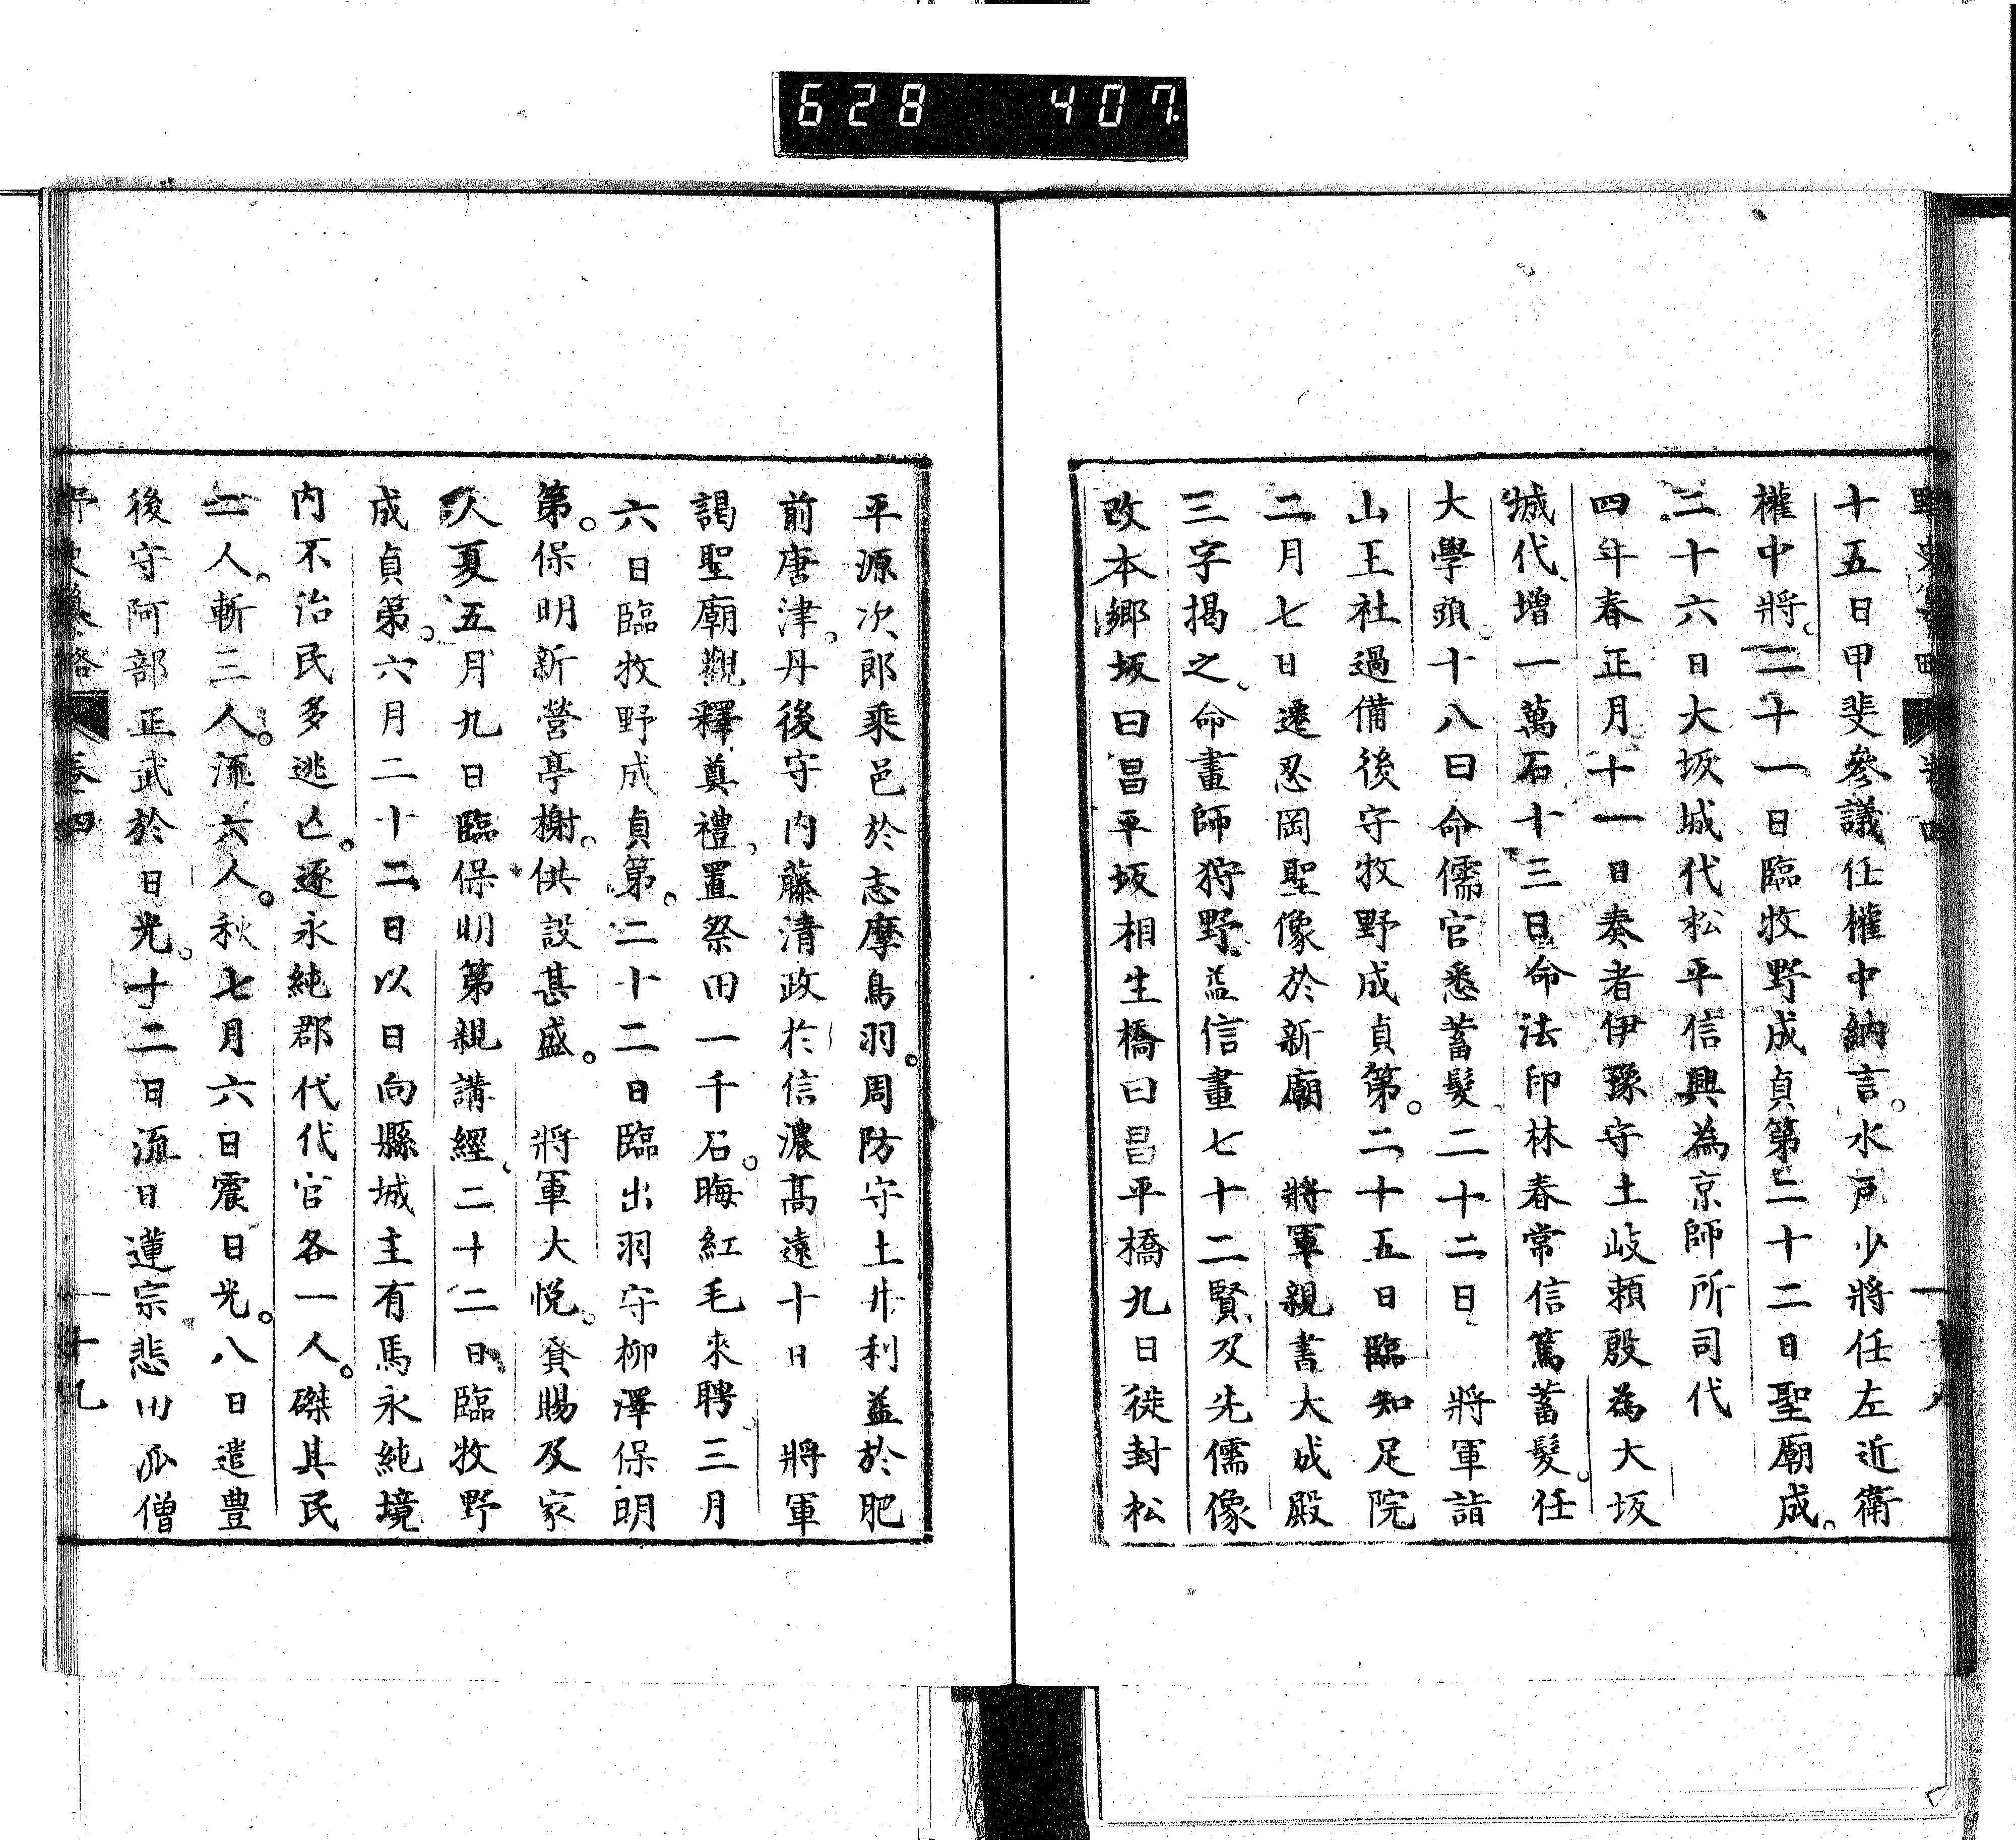 628 407
十五日甲斐參議任權中納言。水戸少將任左近衛
權中將。二十一日臨牧野成貞第二十二日聖廟成。
二十六日大坂城代松平信興為京師所司代
四年春正月十一日奏者伊豫守土岐頼殷為大坂
城代増一萬石十三日命法印林春常信篤蓄髮。任
大學頭。十八日命儒官悉蓄髮二十二日 將軍詣
山王社過備後守牧野成貞第。二十五日臨知足院
二月七日遷忍岡聖像於新廟 將軍親書大成殿
三字揭之命畫師狩野益信畫七十二賢及先儒像
改本鄉坂曰昌平坂相生橋曰昌平橋九日徙封松
平源次郎乘邑於志摩鳥羽。周防守土井利益於肥
前唐津。丹後守内藤清政於信濃髙遠十日 將軍
謁聖廟觀釋奠禮置祭田一千石。晦紅毛來聘三月
六日臨牧野成貞第。二十二日臨出羽守柳澤保明
第。保明新營亭榭。供設甚盛。 將軍大悦。賚賜及家
人夏五月九日臨保明第親講經二十二日臨牧野
成貞第。六月二十二日以日向縣城主有馬永純境
内不治民多逃亡。逐永純郡代代官各一人。磔其民
二人。斬三人。流六人。秋七月六日震日光。八日遣豊
後守阿部正武於日光。十二日流日蓮宗悲田派僧
卷四
十九